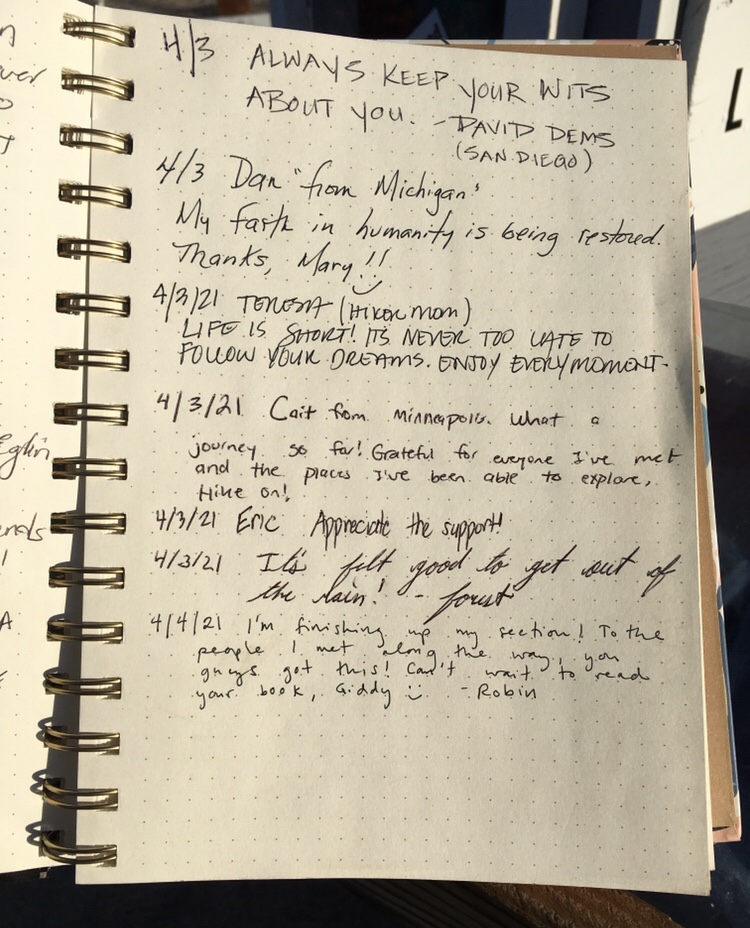 4/3 ALWAYS KEEP YOUR WITS
ABOUT YOU. - DAVID DEMS
(SAN DIEGO)
4/3 Dan "from Michigan"
My faith in humanity is being restored.
Thanks, Mary!!
4/3/21 TERESA (HIKER MOM)
LIFE IS SHORT! ITS NEVER TOO LATE TO
FOLLOW YOUR DREAMS. ENJOY EVERY MOMENT.
4/3/21 Cait from Minneapolis. What a
journey so far! Grateful for everyone I've met
and the places I've been able to explore.
Hike on!
4/3/21 Eric Appreciate the support!
4/3/21 It's felt good to get out of
the rain! - forest
4/4/21 I'm finishing up my section! To the
people I met along the way, you
guys got this! Can't wait to read
your book, Giddy :) - Robin
ver
Eglin
L